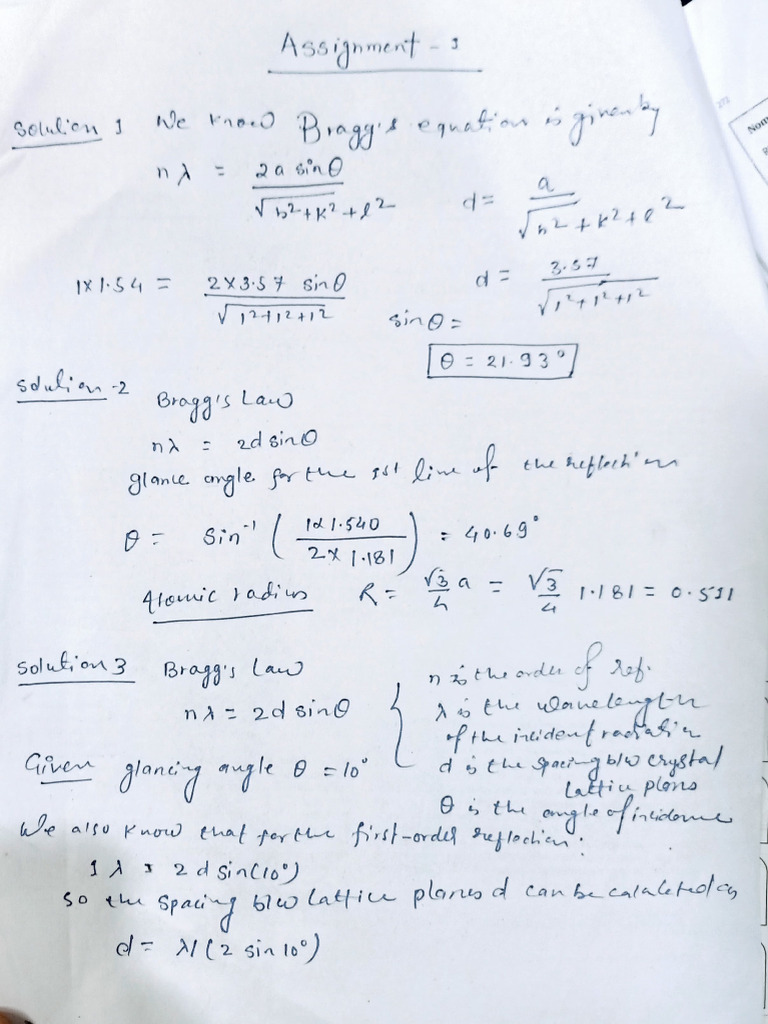 Assignment - 1
Solution 1 We know Bragg's equation is given by
nλ = 2a sinθ / √h²+k²+l²
d = a / √h²+k²+l²
1×1.54 = 2×3.57 sinθ / √1²+1²+1²
d = 3.57 / √1²+1²+1²
sinθ =
θ = 21.93°
Solution-2
Bragg's Law
nλ = 2d sinθ
glance angle for the 1st line of the reflection
θ = Sin⁻¹ (1×1.540 / 2×1.181) = 40.69°
Atomic radius R = √3/4 a = √3/4 1.181 = 0.511
Solution 3 Bragg's Law
nλ = 2d sinθ
n is the order of ref.
λ is the wavelength
of the incident radiation
d is the spacing b/w crystal
lattice plans
θ is the angle of incidence
Given glancing angle θ = 10°
We also know that for the first-order reflection:
1λ = 2d sin(10°)
So the spacing b/w lattice planes d can be calculated as
d = λ/(2 sin 10°)
272
Nom